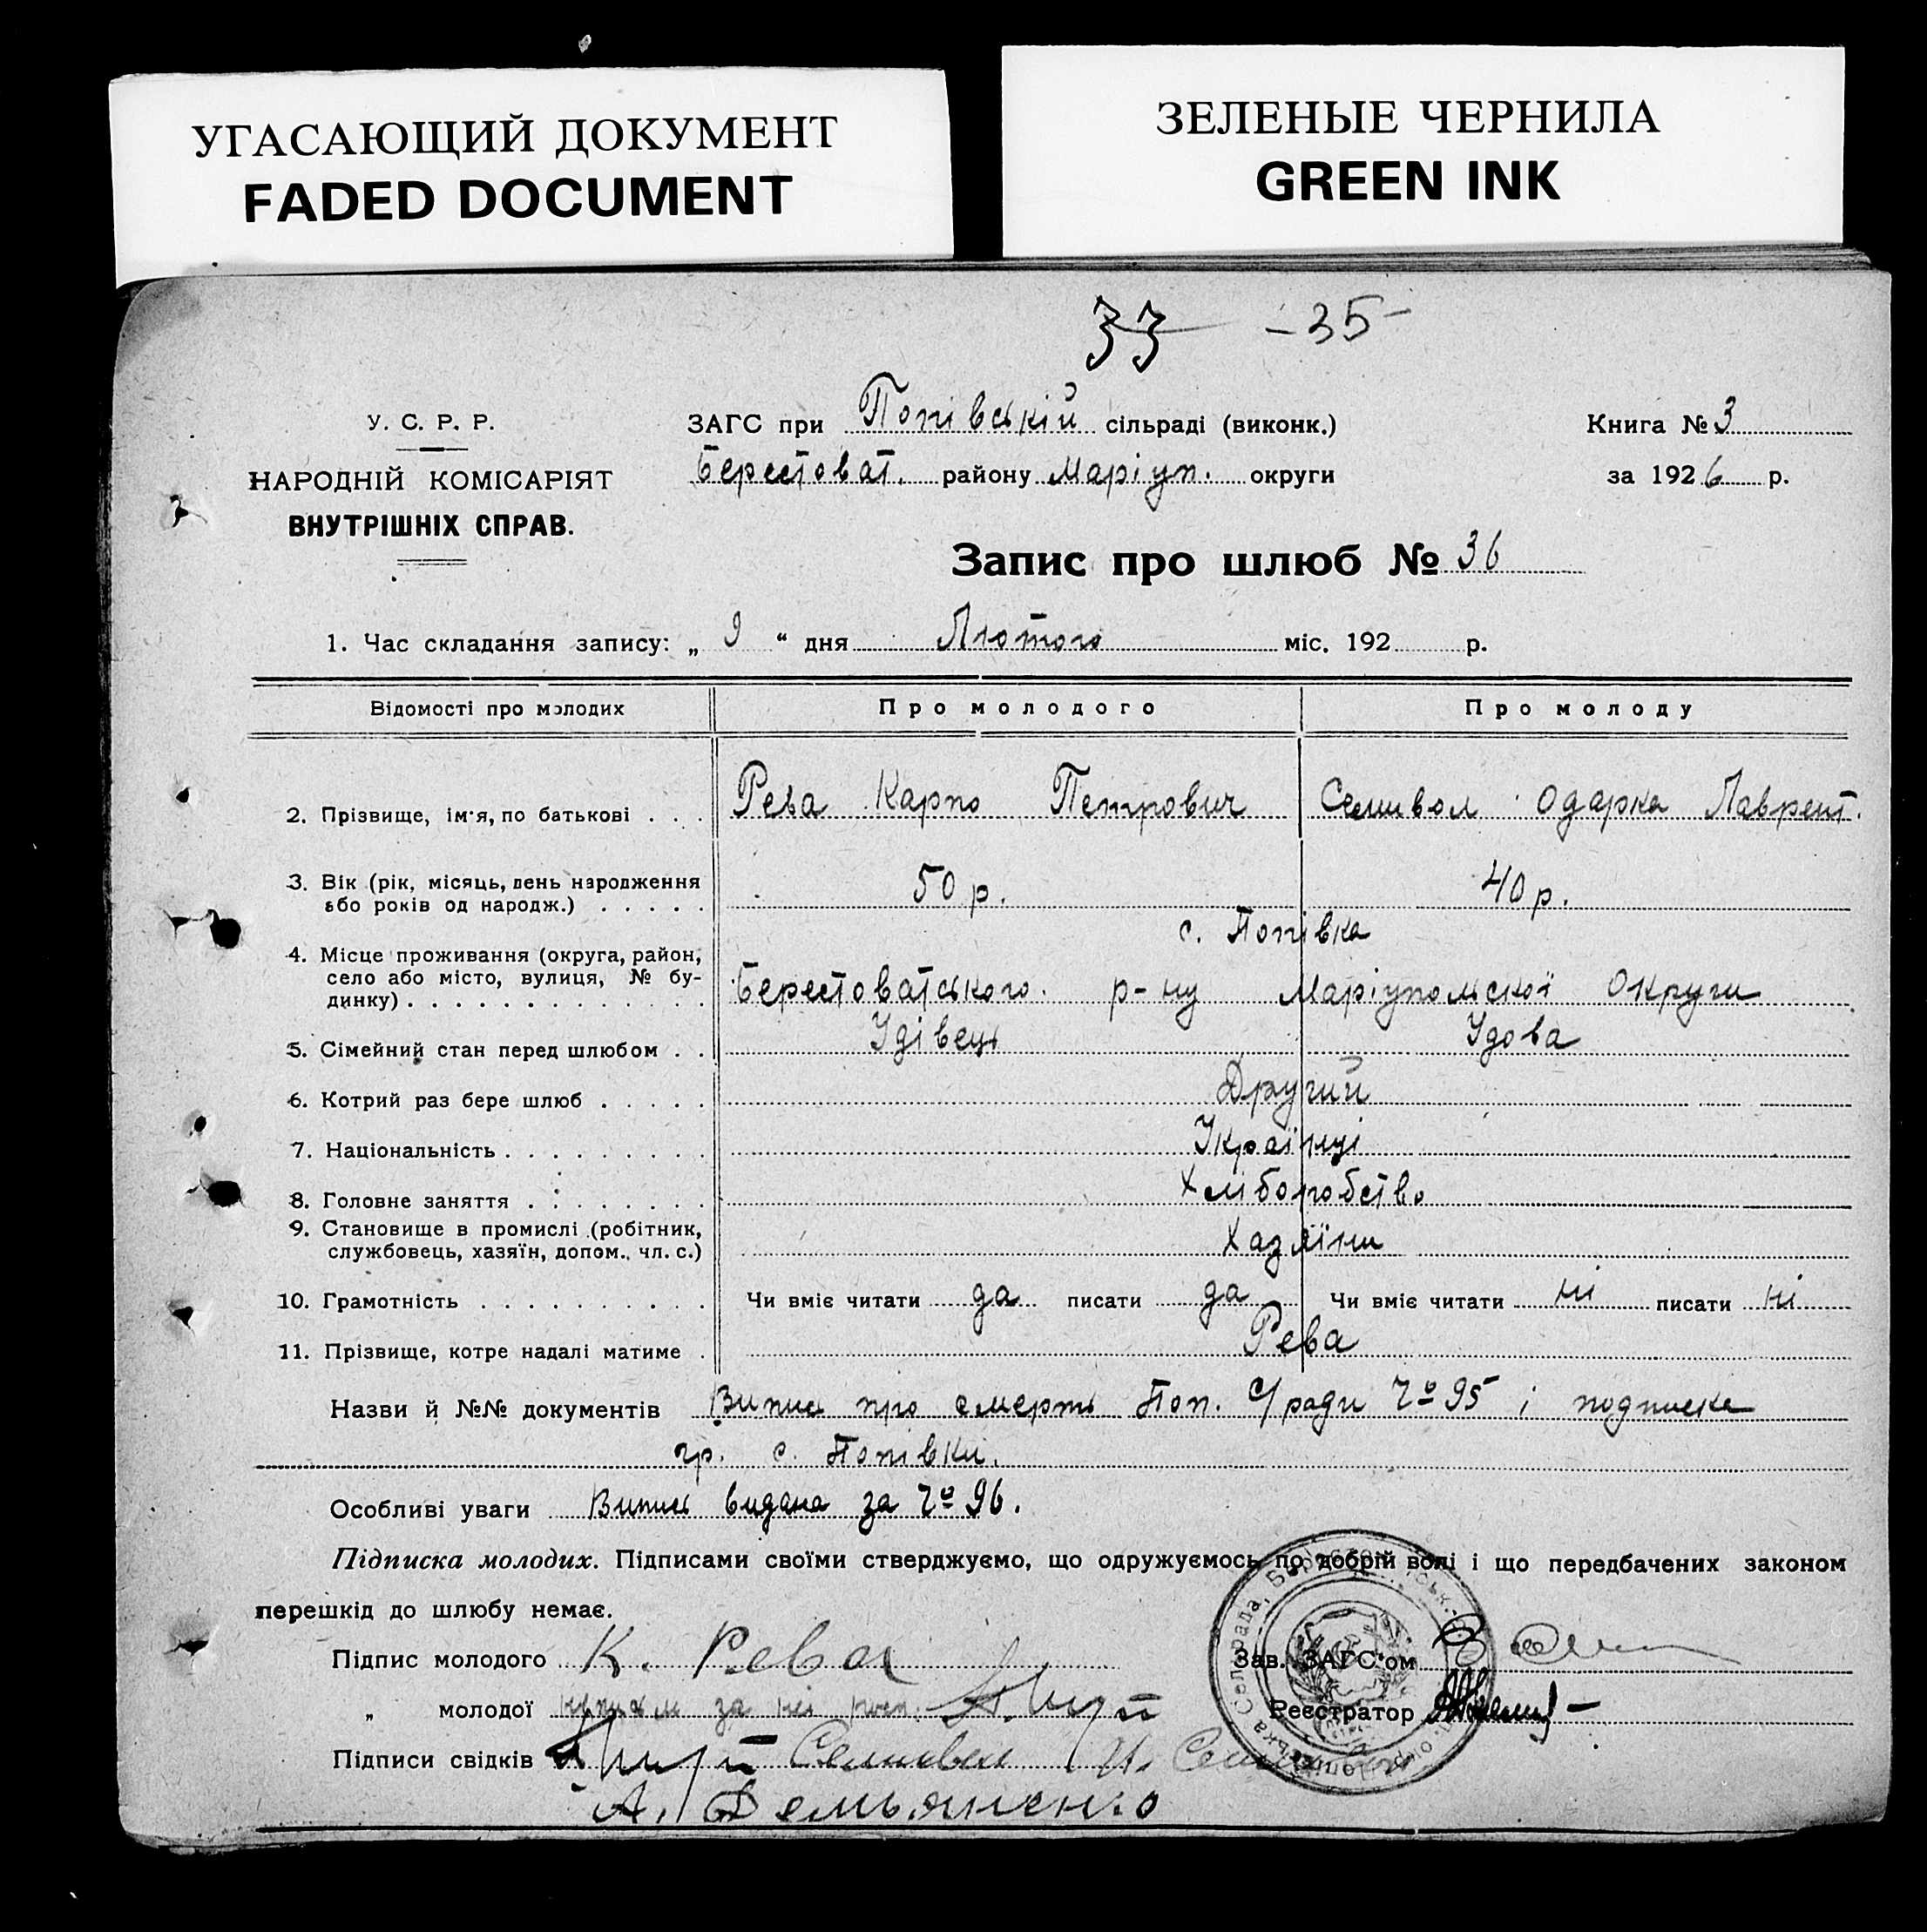 УГАСАЮЩИЙ ДОКУМЕНТ
FADED DOCUMENT
ЗЕЛЕНЫЕ ЧЕРНИЛА
GREEN INK
33 -35-
У. С. Р. Р.
НАРОДНІЙ КОМІСАРІЯТ
ВНУТРІШНІХ СПРАВ.
ЗАГС при Попівській сільраді (виконк.)
Берестоват. району Маріуп. округи
Книга № 3
за 1926 р.
Запис про шлюб № 36
1. Час складання запису: „ 9 “ дня Лютого міс. 192 р.
Відомості про молодих Про молодого Про молоду
2. Прізвище, ім'я, по батькові . . . Рева Карпо Петрович Семивол Одарка Лаврент.
3. Вік (рік, місяць, день народження
або років од народж.) . . . . . 50 р. 40 р.
с. Попівка
4. Місце проживання (округа, район,
село або місто, вулиця, № бу-
динку) . . . . . . . . . . . . . Берестоватського р-ну Маріупольскої Округи
5. Сімейний стан перед шлюбом . . Удівець Удова
6. Котрий раз бере шлюб . . . . . Другий
7. Національність . . . . . . . . . Українці
8. Головне заняття . . . . . . . . Хліборобство
9. Становище в промислі (робітник,
службовець, хазяїн, допом. чл. с.) Хазяїни
10. Грамотність . . . . . . . . . . Чи вміє читати да писати да Чи вміє читати ні писати ні
11. Прізвище, котре надалі матиме . Рева
Назви й №№ документів Випис про смерть Поп. С/ради № 95 і подписка
гр. с. Попівки.
Особливі уваги Випис видана за № 96.
Підписка молодих. Підписами своїми стверджуємо, що одружуємось по добрій волі і що передбачених законом
перешкід до шлюбу немає.
Підпис молодого К. Рева
Зав. ЗАГС'ом
„ молодої за неї
Реєстратор
Підписи свідків Семивол
А. Демьяненко